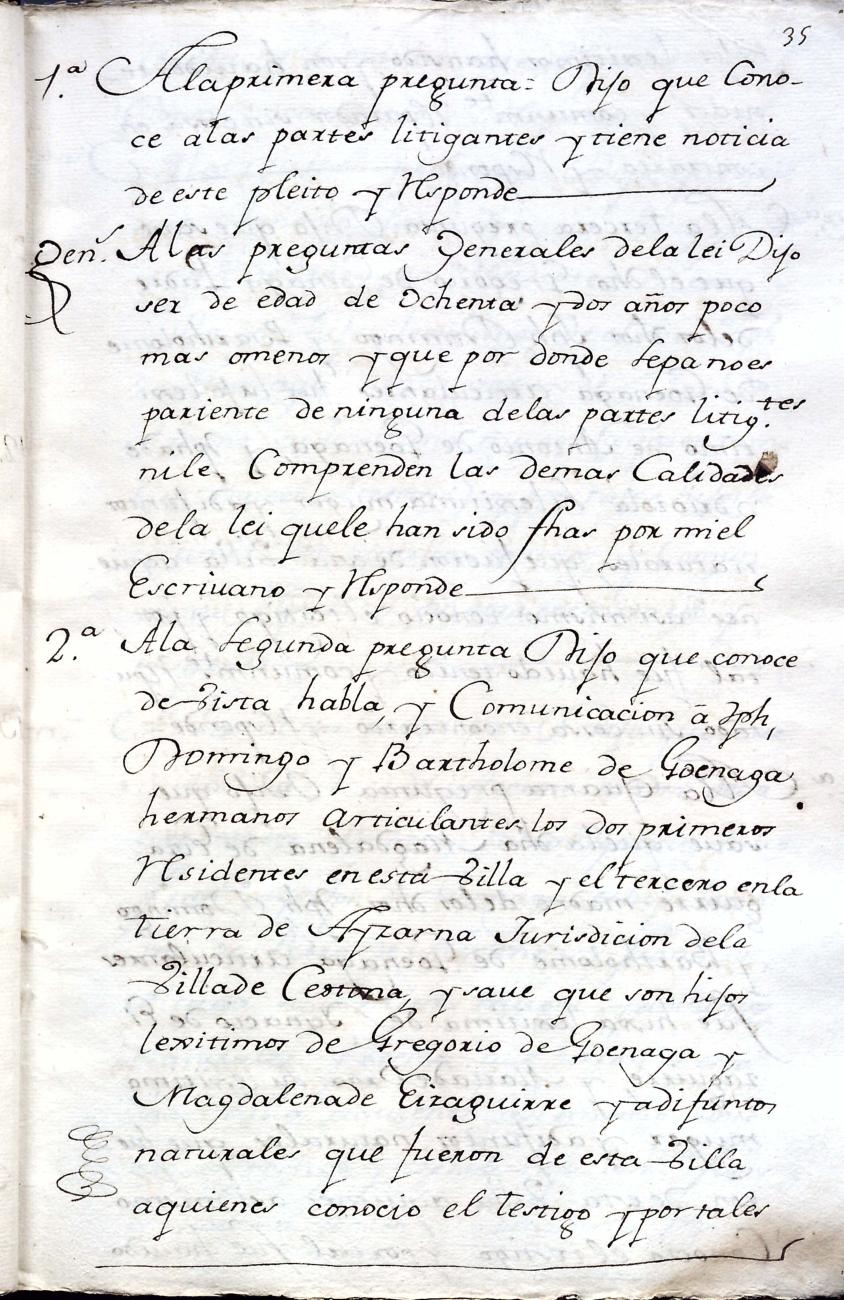 35
1.ª A la primera pregunta= Dijo que Cono-
ce a las partes litigantes y tiene noticia
de este pleito y Rsponde
Genˢ. A las preguntas Generales de la lei Dijo
ser de edad de ochenta y dos años poco
mas o menos y que por donde sepa no es
pariente de ninguna de las partes litig.tes
ni le Comprenden las demas Calidades
de la lei que le han sido fhas por mi el
Escrivano y Rsponde
2.ª A la segunda pregunta Dijo que conoce
de Vista habla, y Comunicacion â Jph,
Domingo y Bartholome de Goenaga
hermanos articulantes los dos primeros
Rsidentes en esta Villa y el tercero en la
tierra de Ayzarna Jurisdicion de la
Villa de Cestona, y save que son hijos
lexitimos de Gregorio de Goenaga y
Magdalena de Eizaguirre ya difuntos
naturales que fueron de esta Villa
a quienes conocio el testigo y por tales